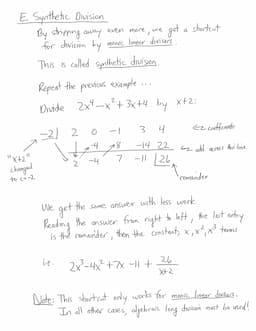 E. Synthetic Division
By stripping away even more, we get a shortcut
for division by monic linear divisors.
This is called synthetic division.
Repeat the previous example ...
Divide 2x⁴-x²+3x+4 by x+2:
-2| 2 0 -1 3 4 ⇐ coefficients
-4 +8 -14 22 ⇐ add across this line
2 -4 7 -11 |26
"x+2"
changed
to c=-2
remainder
We get the same answer with less work.
Reading the answer from right to left, the last entry
is the remainder, then the constant, x, x², x³ terms
i.e. 2x³-4x²+7x-11 + 26/x+2
Note: This shortcut only works for monic linear divisors.
In all other cases, algebraic long division must be used!